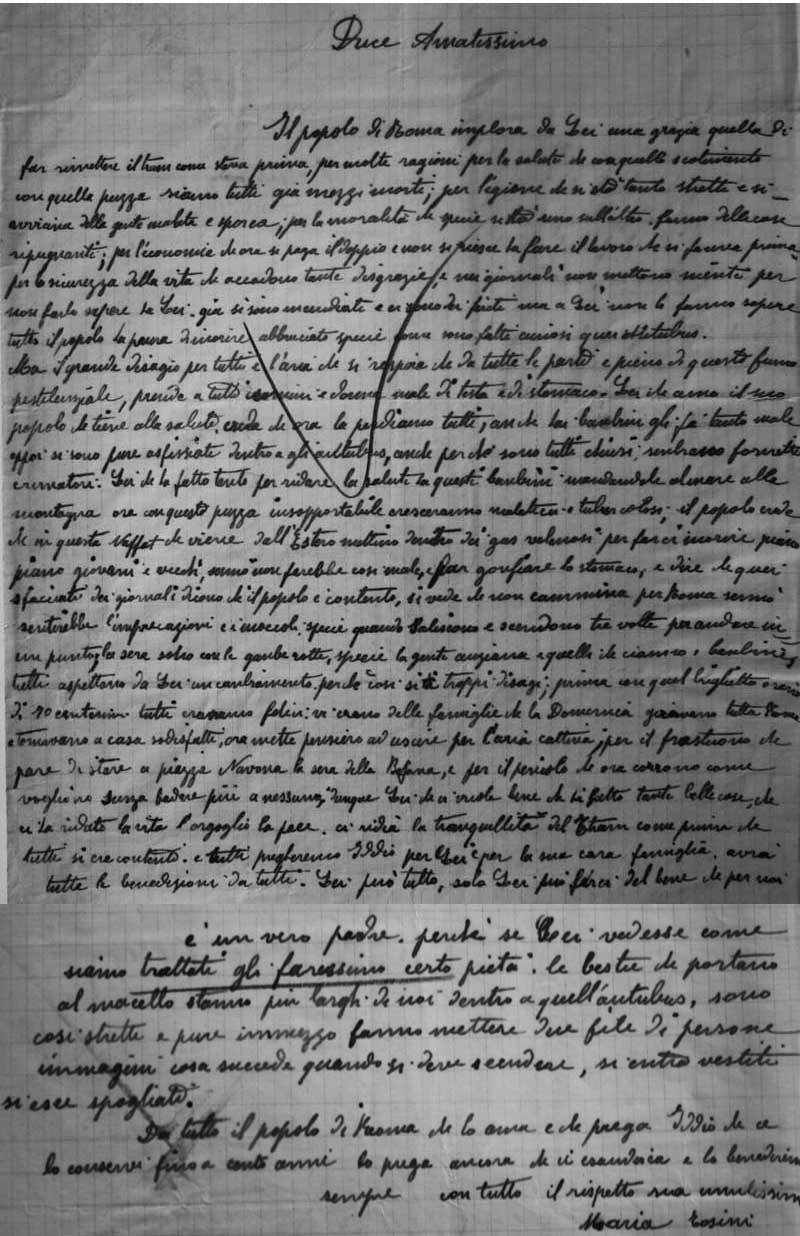 Duce Amatissimo
Il popolo di Roma implora da Lei una grazia quella di
far rimettere il tram come stava prima, per molte ragioni per la salute che con quelle
con quella puzza siamo tutti già mezzi morti; per l'igiene che si sta tanto stretti e si
avvicina delle gente malata e sporca; per la moralità che specie uno sull'altro. fanno delle cose
ripugnanti; per l'economia che ora si paga il doppio e non si riesce da fare il lavoro che si faceva prima
per la sicurezza della vita che accadono tante disgrazie, e nei giornali non mettono niente per
non farlo sapere da Lei. già si sono incendiate e ci sono dei feriti ma a Lei non lo fanno sapere
tutto il popolo la paura di morire abbruciato specie sono fatte curiosi quei
Ma il grande disagio per tutti e l'aria che si respira che da tutte le parti e pieno di questo fumo
pestilenziale, prende a tutti uomini e donne male di testa e di stomaco. Lei che ama il suo
popolo che tiene alla salute, creda che ora la perdiamo tutti, anche hai bambini gli fa tanto male
eppoi si sono pure asfissiate dentro a gli autubus, anche perchè sono tutti chiusi; sembrano
crematori. Lei che la fatto tanto per ridare la salute ha questi bambini mandandole al mare alla
montagna ora con questa puzza insopportabile cresceranno malatticci e tubercolosi; il popolo crede
che in questa che viene dall'Estero mettino dentro dei gas velenosi per farci morire piano
piano giovani e vecchi, sennò non farebbe cosi male, e far gonfiare lo stomaco, e dire che quei
sfacciati dei giornali dicono che il popolo e contento, si vede che non cammina per Roma sennò
sentirebbe l'imprecazioni e i moccoli. specie quando saliscono e scendono tre volte per andare in
un punto, la sera sono con le gambe rotte, specie la gente anziana e quelle che cianno i bambini,
tutti aspettano da Lei un cambiamento, perchè cosi si troppi disagi; prima con quel biglietto
di 70 centesimi tutti eravamo felici; vi erano delle famiglie che la Domenica giravano tutta Roma
e tornavano a casa sodisfatti, ora mette pensiero ad uscire per l'aria cattiva, per il frastuono che
pare di stare a piazza Navona la sera della Befana, e per il pericolo che ora corrono come
vogliono senza badare più a nessuno, dunque Lei che ci vuole bene che si fatto tante belle cose, che
ci ha ridato la vita l'orgoglio la pace. ci ridia la tranquillità del Tram come prima che
tutti si era contenti. e tutti pregheremo Iddio per Lei e per la sua cara famiglia. avrai
tutte le benedizioni da tutti. Lei può tutto, solo Lei può farci del bene che per noi
è un vero padre. perchè se Lei vedesse come
siamo trattati gli faressimo certo pietà. le bestie che portano
al macello stanno più larghi di noi dentro a quell'autubus, sono
cosi strette e pure immezzo fanno mettere due file di persone
immagini cosa succede quando si deve scendere, si entra vestiti
si esce spogliati.
Da tutto il popolo di Roma che lo ama e che prega Iddio che ce
lo conservi fino a cento anni lo prega ancora che ci esaudisca e lo
sempre con tutto il rispetto sua umilissima
Maria